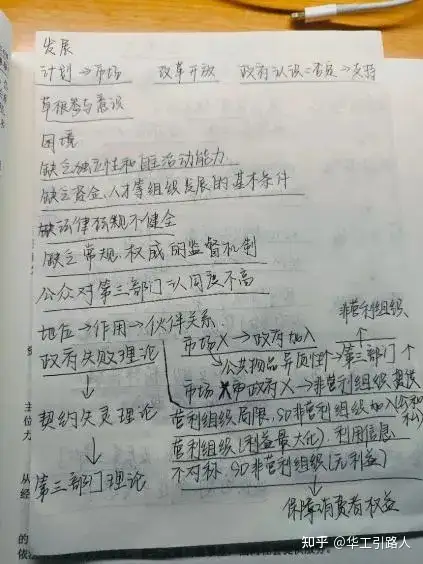 发展
计划→市场 改革开放 政府认识:否定→支持
草根参与意识
困境
缺乏独立性和自主活动能力
缺乏资金、人才等组织发展的基本条件
法律法规不健全
缺乏常规、权威的监督机制
公众对第三部门认同度不高
非营利组织
地位→作用→伙伴关系
市场X→政府加入
政府失败理论
公共物品异质性→第三部门
市场 政府X→非营利组织提供
契约失灵理论
营利组织局限,SO非营利组织加入(公和私)
营利组织(利益最大化),利用信息
不对称,SO非营利组织(无利益)
第三部门理论
保障消费者权益
主
位
力
从
经
的
依
知乎 @华工引路人